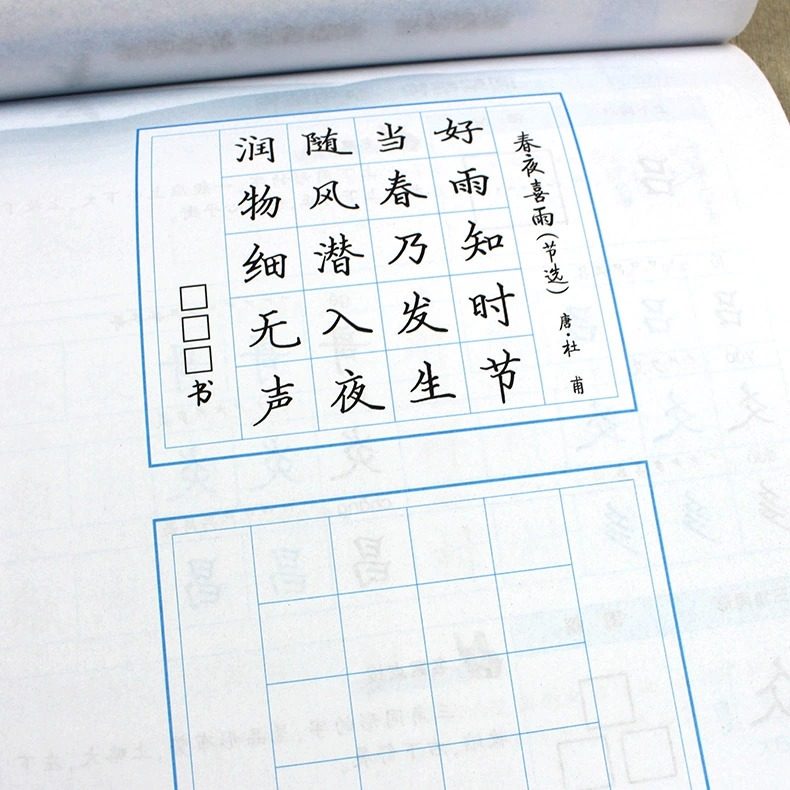 春夜喜雨(节选) 唐·杜甫
好雨知时节
当春乃发生
随风潜入夜
润物细无声
□□□书